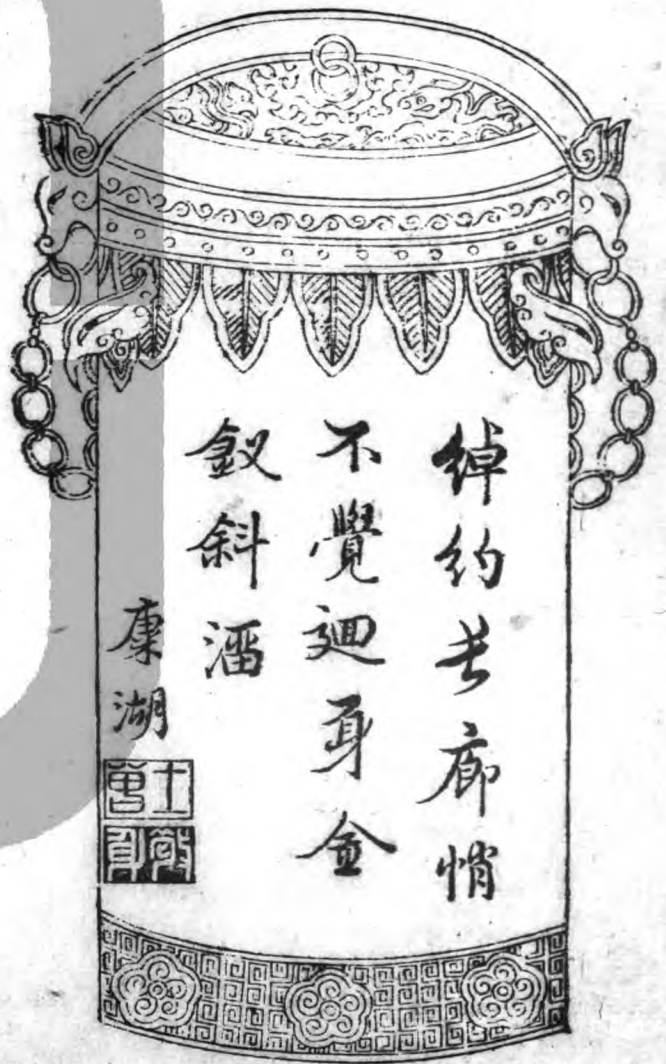 綽約長廊悄
不覺廻身金
釵斜溜
康湖